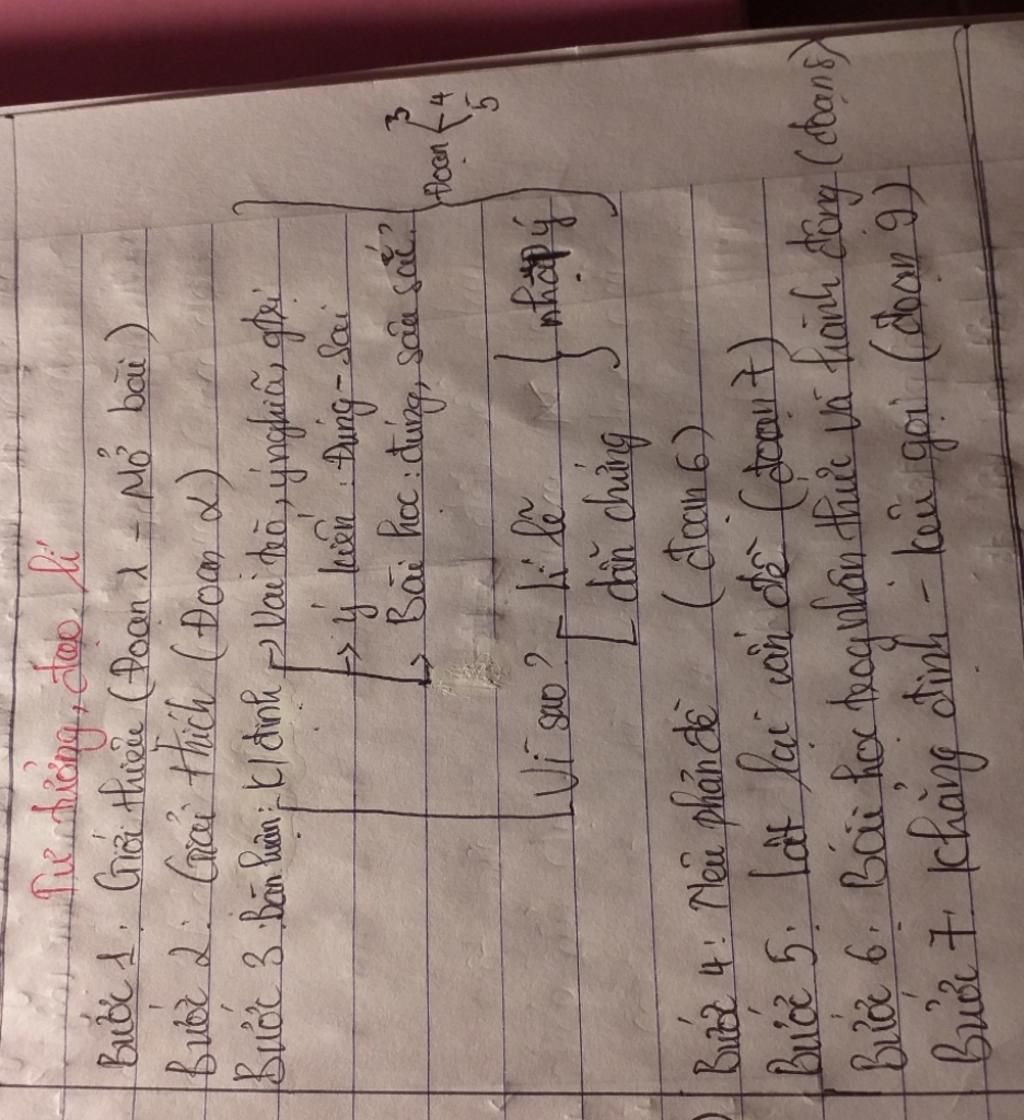 Tư tưởng, đạo lí
Bước 1: Giới thiệu (Đoạn 1 - Mở bài)
Bước 2: Giải thích (Đoạn 2)
Bước 3: bàn luận: K/định → Vai trò, ý nghĩa, giá trị
→ ý kiến: Đúng - Sai
→ Bài học: đúng, sâu sắc?
Đoạn { 3 4 5
Vì sao? Lí lẽ
dẫn chứng
nhập ý
Bước 4: Nêu phản đề (đoạn 6)
Bước 5: lật lại vấn đề (đoạn 7)
Bước 6: Bài học trong nhận thức và hành động (đoạn 8)
Bước 7: Khẳng định - kêu gọi (đoạn 9)